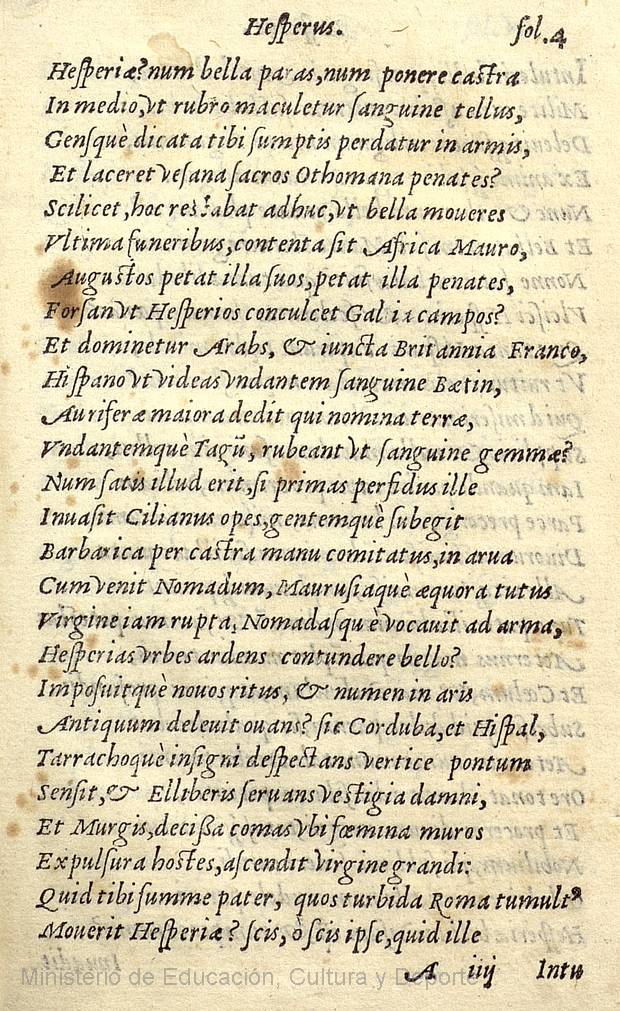 Hesperus. fol.4
Hesperiæ? num bella paras, num ponere castra
In medio, vt rubro maculetur sanguine tellus,
Gensquè dicata tibi sumptis perdatur in armis,
Et laceret vesana sacros Othomana penates?
Scilicet, hoc restabat adhuc, vt bella moueres
Vltima funeribus, contenta sit Africa Mauro,
Augustos petat illa suos, petat illa penates,
Forsan vt Hesperios conculcet Gallia campos?
Et dominetur Arabs, & iuncta Britannia Franco,
Hispano vt videas vndantem sanguine Bætin,
Auriferæ maiora dedit qui nomina terræ,
Vndantemquè Tagũ, rubeant vt sanguine gemmæ?
Num satis illud erit, si primas perfidus ille
Inuasit Cilianus opes, gentemquè subegit
Barbarica per castra manu comitatus, in arua
Cum venit Nomadum, Maurusiaquè æquora tutus
Virgine iam rupta, Nomadasquè vocauit ad arma,
Hesperias vrbes ardens contundere bello?
Imposuitquè nouos ritus, & numen in aris
Antiquum deleuit ouans? sic Corduba, et Hispal,
Tarrachoquè insigni despectans vertice pontum
Sensit, & Elliberis seruans vestigia damni,
Et Murgis, decissa comas vbi fœmina muros
Expulsura hostes, ascendit virgine grandi:
Quid tibi summe pater, quos turbida Roma tumultꝰ
Mouerit Hesperiæ? scis, ò scis ipse, quid ille
A iiij Intu
Ministerio de Educación, Cultura y Deporte